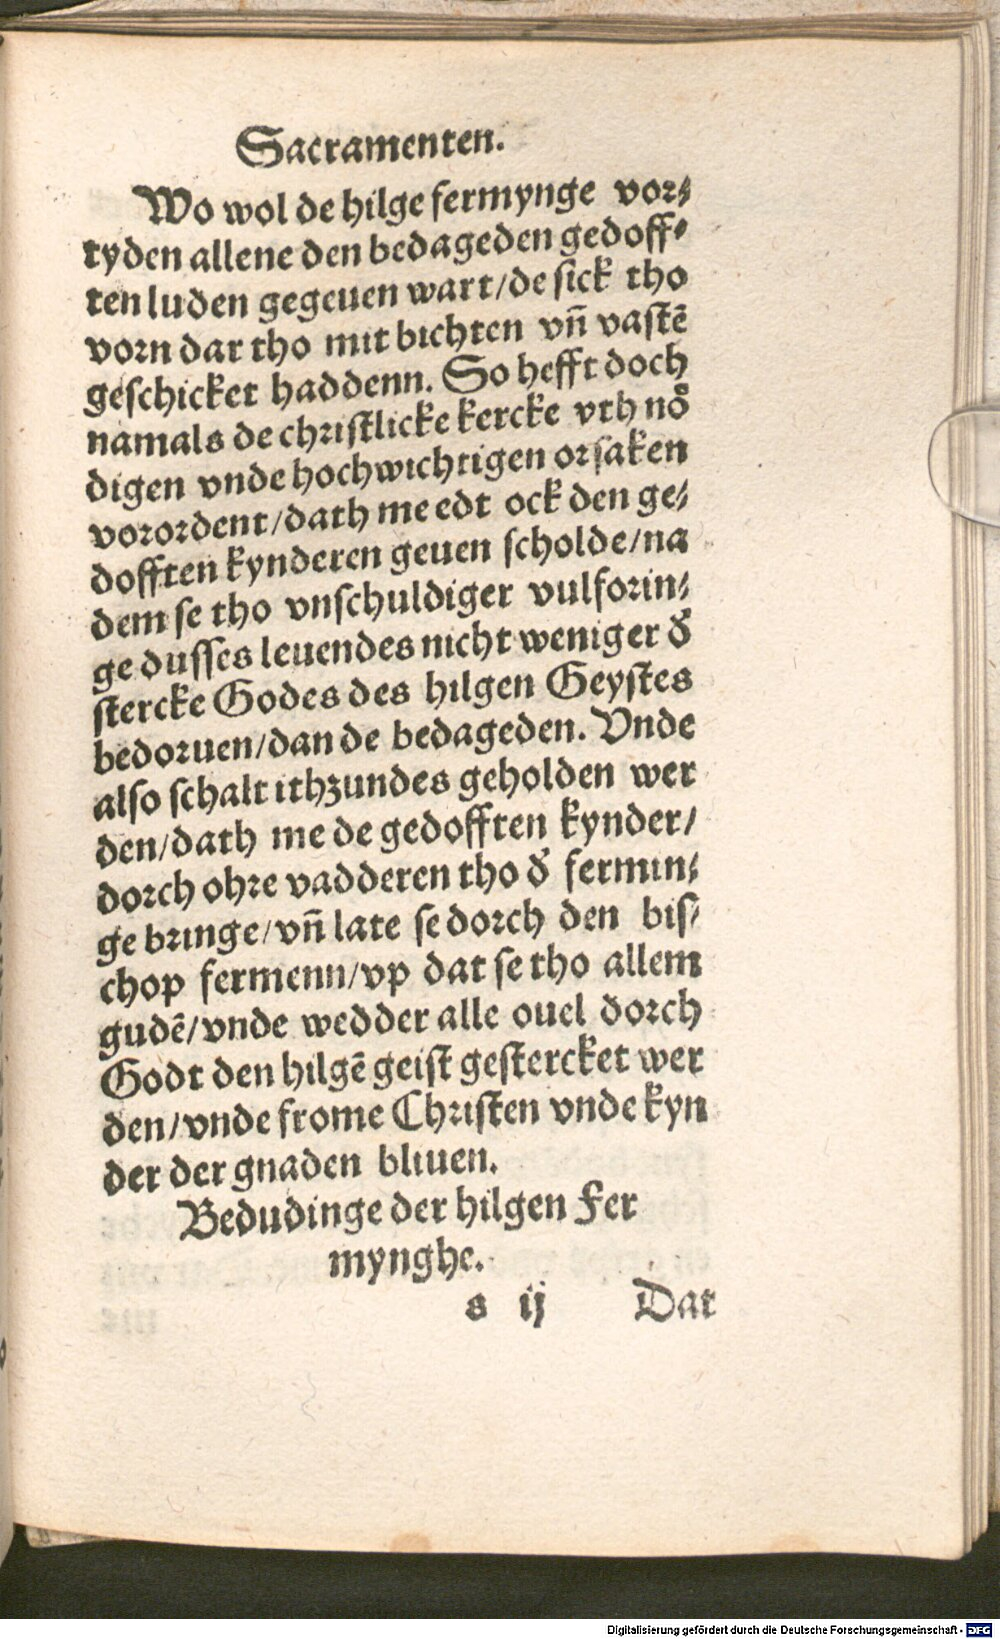 Sacramenten.
Wo wol de hilge fermynge vor⸗
tyden allene den bedageden gedoff⸗
ten luden gegeuen wart/de sick tho
vorn dar tho mit bichten vn̄ vastē
geschicket haddenn. So hefft doch
namals de christlicke kercke vth noͤ
digen vnde hochwichtigen orsaken
vorordent/dath me edt ock den ge⸗
dofften kynderen geuen scholde/na
dem se tho vnschuldiger vulforin⸗
ge dusses leuendes nicht weniger d̓
stercke Godes des hilgen Geystes
bedoruen/dan de bedageden. Vnde
also schalt ithzundes geholden wer
den/dath me de gedofften kynder/
dorch ohre vadderen tho d̓ fermin⸗
ge bringe/vn̄ late se dorch den bis⸗
chop fermenn/vp dat se tho allem
gudē/vnde wedder alle ouel dorch
Godt den hilgē geist gestercket wer
den/vnde frome Christen vnde kyn
der der gnaden bliuen.
Bedudinge der hilgen Fer
mynghe.
s ij Dat
Digitalisierung gefördert durch die Deutsche Forschungsgemeinschaft - DFG